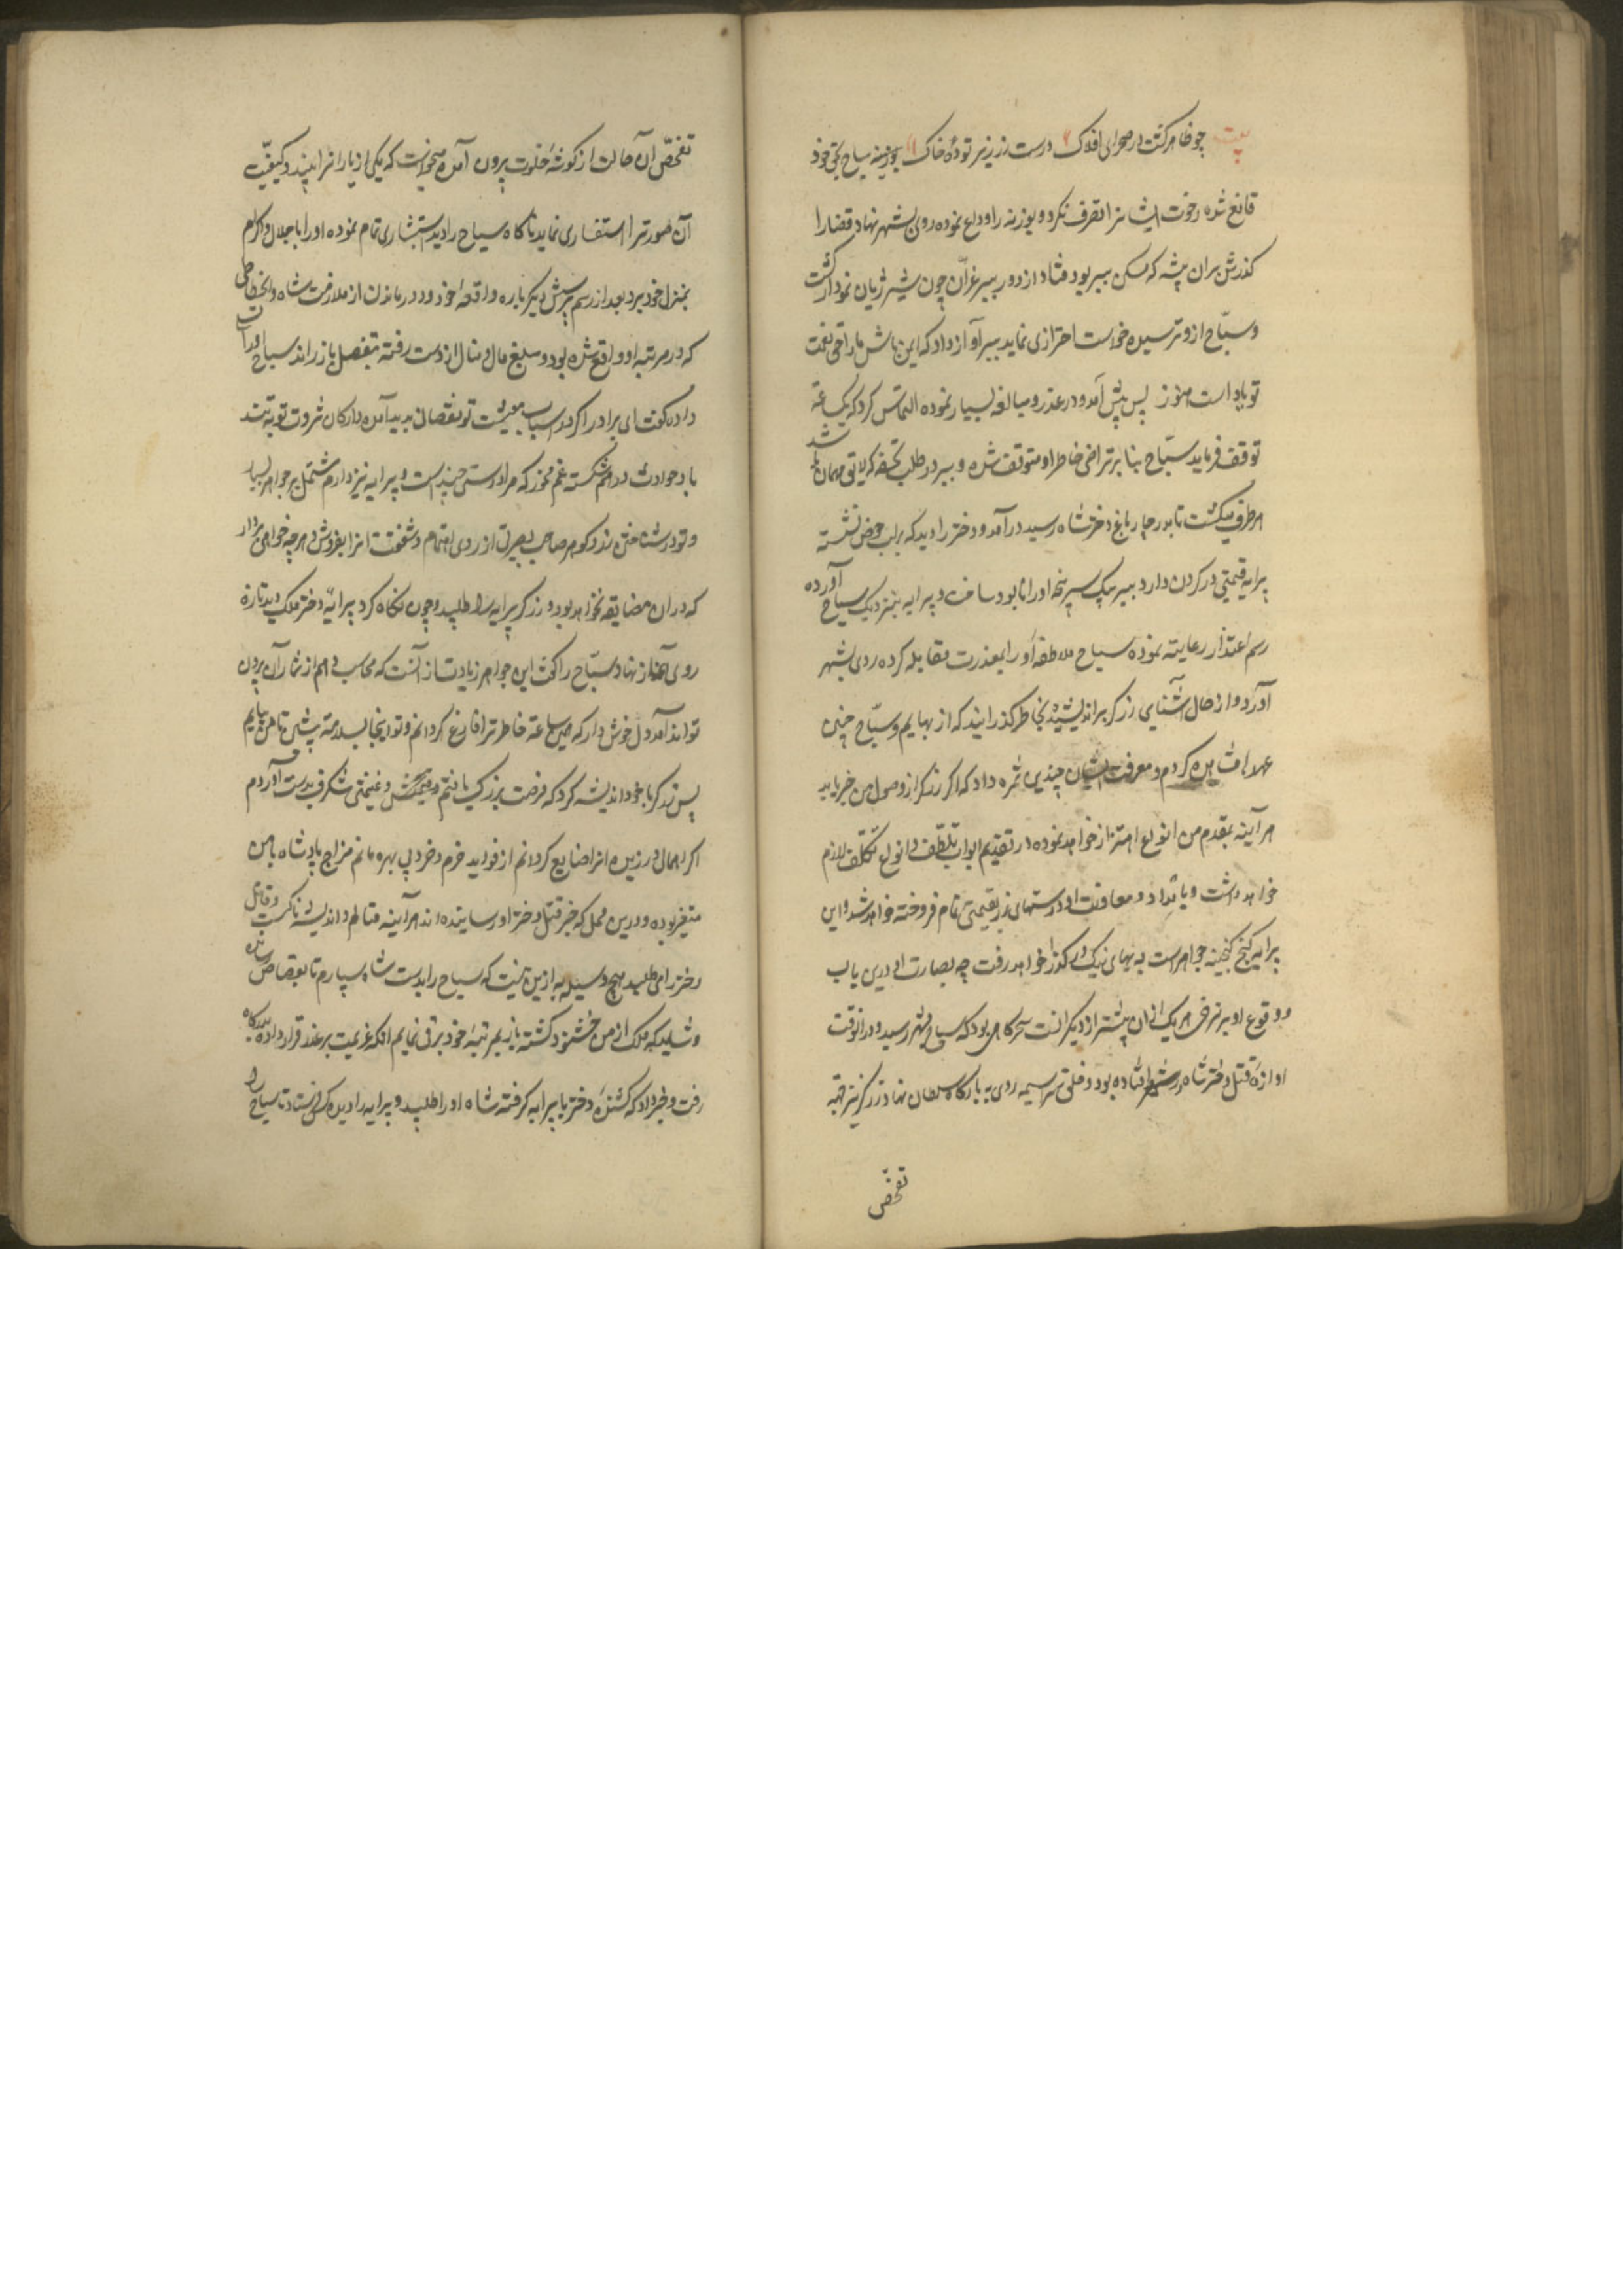 بیت چو ظاهر کشت در صحرای افلاک درست زر ز زیر توده خاک بوزینه سیاح
قانع شده رخوت ایشانرا تصرف نکرد و بوزینه را وداع نموده روی بشهر نهاد قضارا
کذرش بران بیشه که مسکن ببر بود فتاد از دور ببر غرّان چون شیر ژیان نمودار کشت
و سیّاح ازو ترسیده خواست احترازی نماید ببر آواز داد که ایمن باش مارا حق نعمت
تو یاد است هنوز پس پیش آمد و در عذر و مبالغه بسیار نموده التماس کرد که یک ساعته
توقف فرماید سیّاح بنا بر تراضی خاطر او متوقف شده و ببر در طلب تحفه که لایق مهمان باشد
هر طرف میکشت تا بدر چارباغ دختر شاه رسید در آمد و دختر را دید که بر لب حوض نشسته
پرایه قیمتی در کردن دارد ببر بیک سرپنجه اورا نابود ساخت و پیرایه بنزدیک سیاح آورده
رسم اعتذار رعایته نموده سیاح ملاطفه اورا بمعذرت مقابله کرده روی بشهر
آورد و از حال آشنایی زرکر براندیشیده بخاطر کذرانید که از بهایم و سباع چنین
عهد مشاهده کردم و معرفت ایشان چندین ثمره داد که اکر زرکر از وصول من خبر یابد
هر آینه بمقدم من انواع اهتزاز خواهد نموده در تقدیم ابواب تلطّف و انواع تکلّف لازم
خواهد داشت و بامداد و معاونت او درستهای زر بقیمتی تمام فروخته خواهد شد و این
پرایه کنج کنجینه جواهر است به بهای نیک در کذر خواهد رفت چه بصارت او درین باب
و وقوف او بر نرخ هر یک ازان بیشتر از دیکرانست سحرکاهی بود که سیاح بشهر رسید و درانوقت
اوازه قتل دختر شاه در شهر افتاده بود و خلق سراسیمه روی به بارکاه سلطان نهاد زرکر نیز جهة
تفحّص
تفحّص آن حالت از کوشه خلوت بیرون آمده میخواست که یکی از یارانرا بیند و کیفیّت
آن صورترا استفساری نماید ناکاه سیاح را دید استبشاری تمام نموده اورا باجلال و اکرام
بمنزل خود برد بعد از رسم پرسش دیکر باره واقعه خود و دور ماندن از ملازمت شاه و انحطاطی
که در مرتبه او واقع شده بود و مبلغ مال و منال از دست رفته بتفصیل باز راند سیاح
داده کفت ای برادر اکر در اسباب معیشت تو نقصانی پدید آمده و ارکان ثروت تو به تند
باد حوادث درهم شکسته غم مخور که مرا درستی چند است و پیرایه نیز دارم مشتمل بر جواهر بسیار
و تو در شناختن زر و کوهر صاحب بصیرتی از روی اهتمام و شفقت انرا بفروش و هرچه خواهی بردار
که دران مضایقه نخواهد بود زرکر پیرایه را طلبید و چون نکاه کرد پیرایه دختر ملک دید تازه
روی آغاز نهاد و سیّاح را کفت این جواهر زیادت از آنست که محاسب وهم از شمار آن بیرون
تواند آمد دل خوش دار که همین ساعته خاطر ترا فارغ کردانم و تو اینجا بسلامته باش تا من بیایم
پس زرکر با خود اندیشه کرد که فرصت بزرک یافتم و غنیمتی شکرف بدست آوردم
اکر اهمال ورزیده انرا ضایع کردانم از فواید خرم و خرد بی بهره مانم مزاج پادشاه با من
متغیر بوده و درین محل که خبر قتل دختر اورسانیده اند هر آینه متالم و اندیشه ناکست و قاتل
دختر را می طلبد هیچ وسیله به ازین نیست که سیاح را بدست شاه سپارم تا بقصاص رساند
و شاید که ملک از من خشنود کشته باز بمرتبه خود ترقی نمایم انکه عزیمت بر غدر قرار داده بدرکاه
رفت و خبر داد که کشنده دختر با پیرایه کرفته شاه اورا طلبید و پیرایه را دیده کس فرستاد تا سیاح را